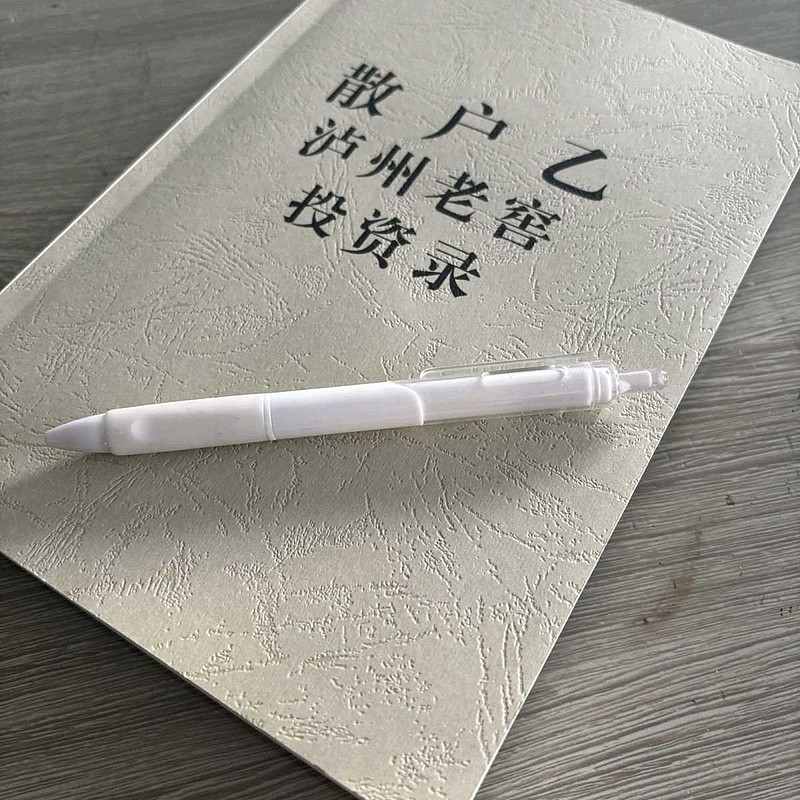 散户乙
泸州老窖
投资录